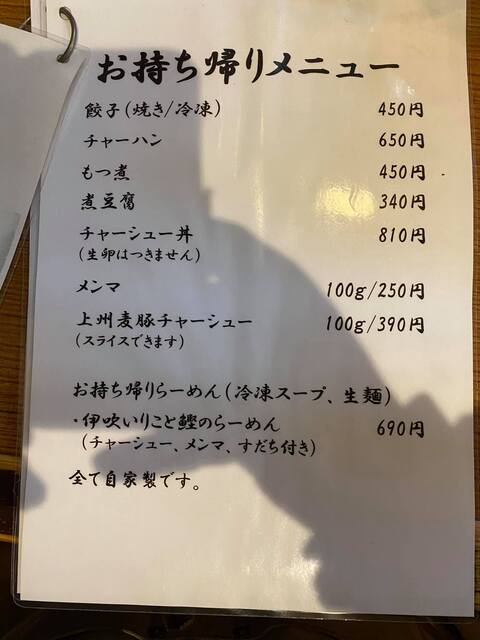 お持ち帰りメニュー
餃子(焼き/冷凍) 450円
チャーハン 650円
もつ煮 450円
煮豆腐 340円
チャーシュー丼 810円
(生卵はつきません)
メンマ 100g/250円
上州麦豚チャーシュー 100g/390円
(スライスできます)
お持ち帰りらーめん(冷凍スープ、生麺)
・伊吹いりこと鰹のらーめん 690円
(チャーシュー、メンマ、すだち付き)
全て自家製です。